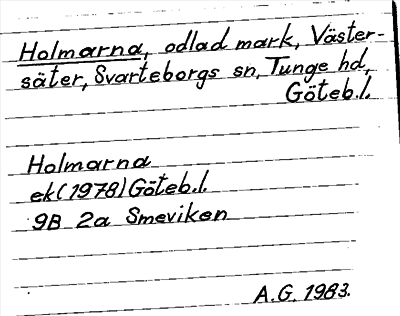 Holmarna, odlad mark, Väster-
säter, Svarteborgs sn, Tunge hd,
Göteb.l.
Holmarna
ek(1978)Göteb.l.
9B 2a Smeviken
A.G. 1983.